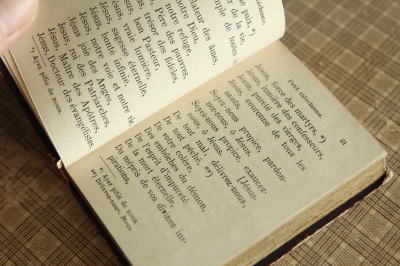 Jésus, Père des pauvres,
Jésus, trésor des fidèles,
Jésus, bon Pasteur,
Jésus, vraie lumière,
Jésus, sagesse éternelle,
Jésus, bonté infinie,
Jésus, notre voie et notre vie,
Jésus, joie des Anges,
Jésus, roi des Patriarches,
Jésus, Maître des Apôtres,
Jésus, Docteur des évangélistes,
*) Ayez pitié de nous.
21
Jésus, force des martyrs, *)
Jésus, lumière des confesseurs,
Jésus, pureté des vierges,
Jésus, couronne de tous les
saints,
Soyez-nous propice, pardon-
nez-nous, ô Jésus.
Soyez-nous propice, exaucez-
nous, ô Jésus. [Jésus.
De tout mal, **) délivrez-nous,
De tout péché,
De votre colère,
Des embûches du démon,
De l'esprit d'impureté,
De la mort éternelle,
Du mépris de vos divines ins-
pirations,
*) Ayez pitié de nous.
**) Délivrez-nous, Jésus